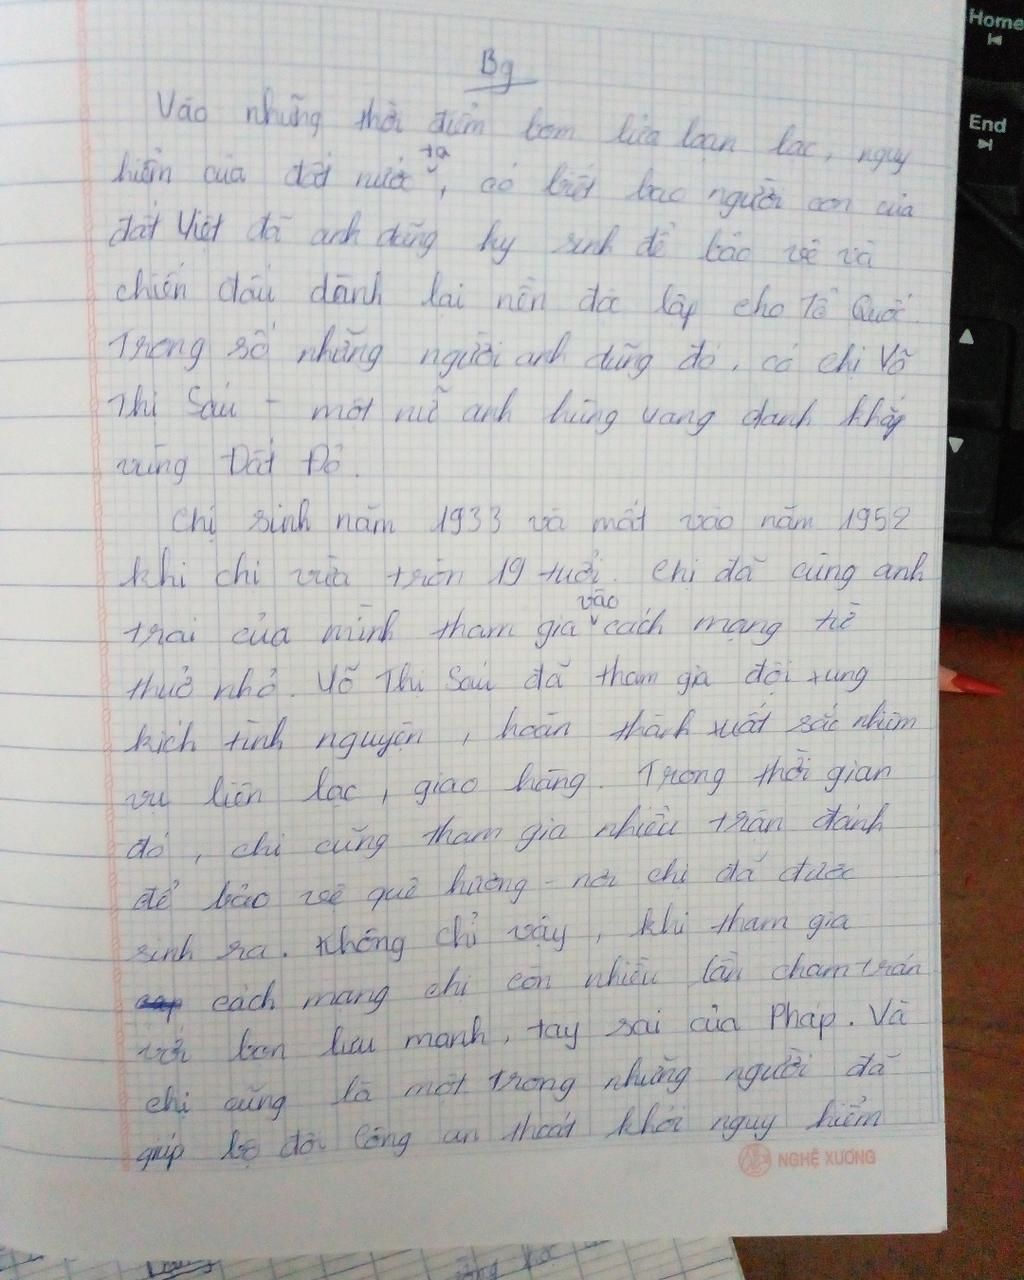 Bg
Vào những thời điểm bom lửa loạn lạc, nguy
hiểm của đất nước ta, có biết bao người con của
đất Việt đã anh dũng hy sinh để bảo vệ và
chiến đấu dành lại nền độc lập cho Tổ Quốc.
Trong số những người anh dũng đó, có chị Võ
Thị Sáu - một nữ anh hùng vang danh khắp
vùng Đất Đỏ.
Chị sinh năm 1933 và mất vào năm 1952
khi chị vừa tròn 19 tuổi. Chị đã cùng anh
trai của mình tham gia vào cách mạng từ
thuở nhỏ. Võ Thị Sáu đã tham gia đội xung
kích tình nguyện, hoàn thành xuất sắc nhiệm
vụ liên lạc, giao hàng. Trong thời gian
đó, chị cũng tham gia nhiều trận đánh
để bảo vệ quê hương - nơi chị đã được
sinh ra. Không chỉ vậy, khi tham gia
cách mạng chị còn nhiều lần chạm trán
với bọn lưu manh, tay sai của Pháp. Và
chị cũng là một trong những người đã
giúp bộ đội công an thoát khỏi nguy hiểm
NGHỆ XƯƠNG
Home
End